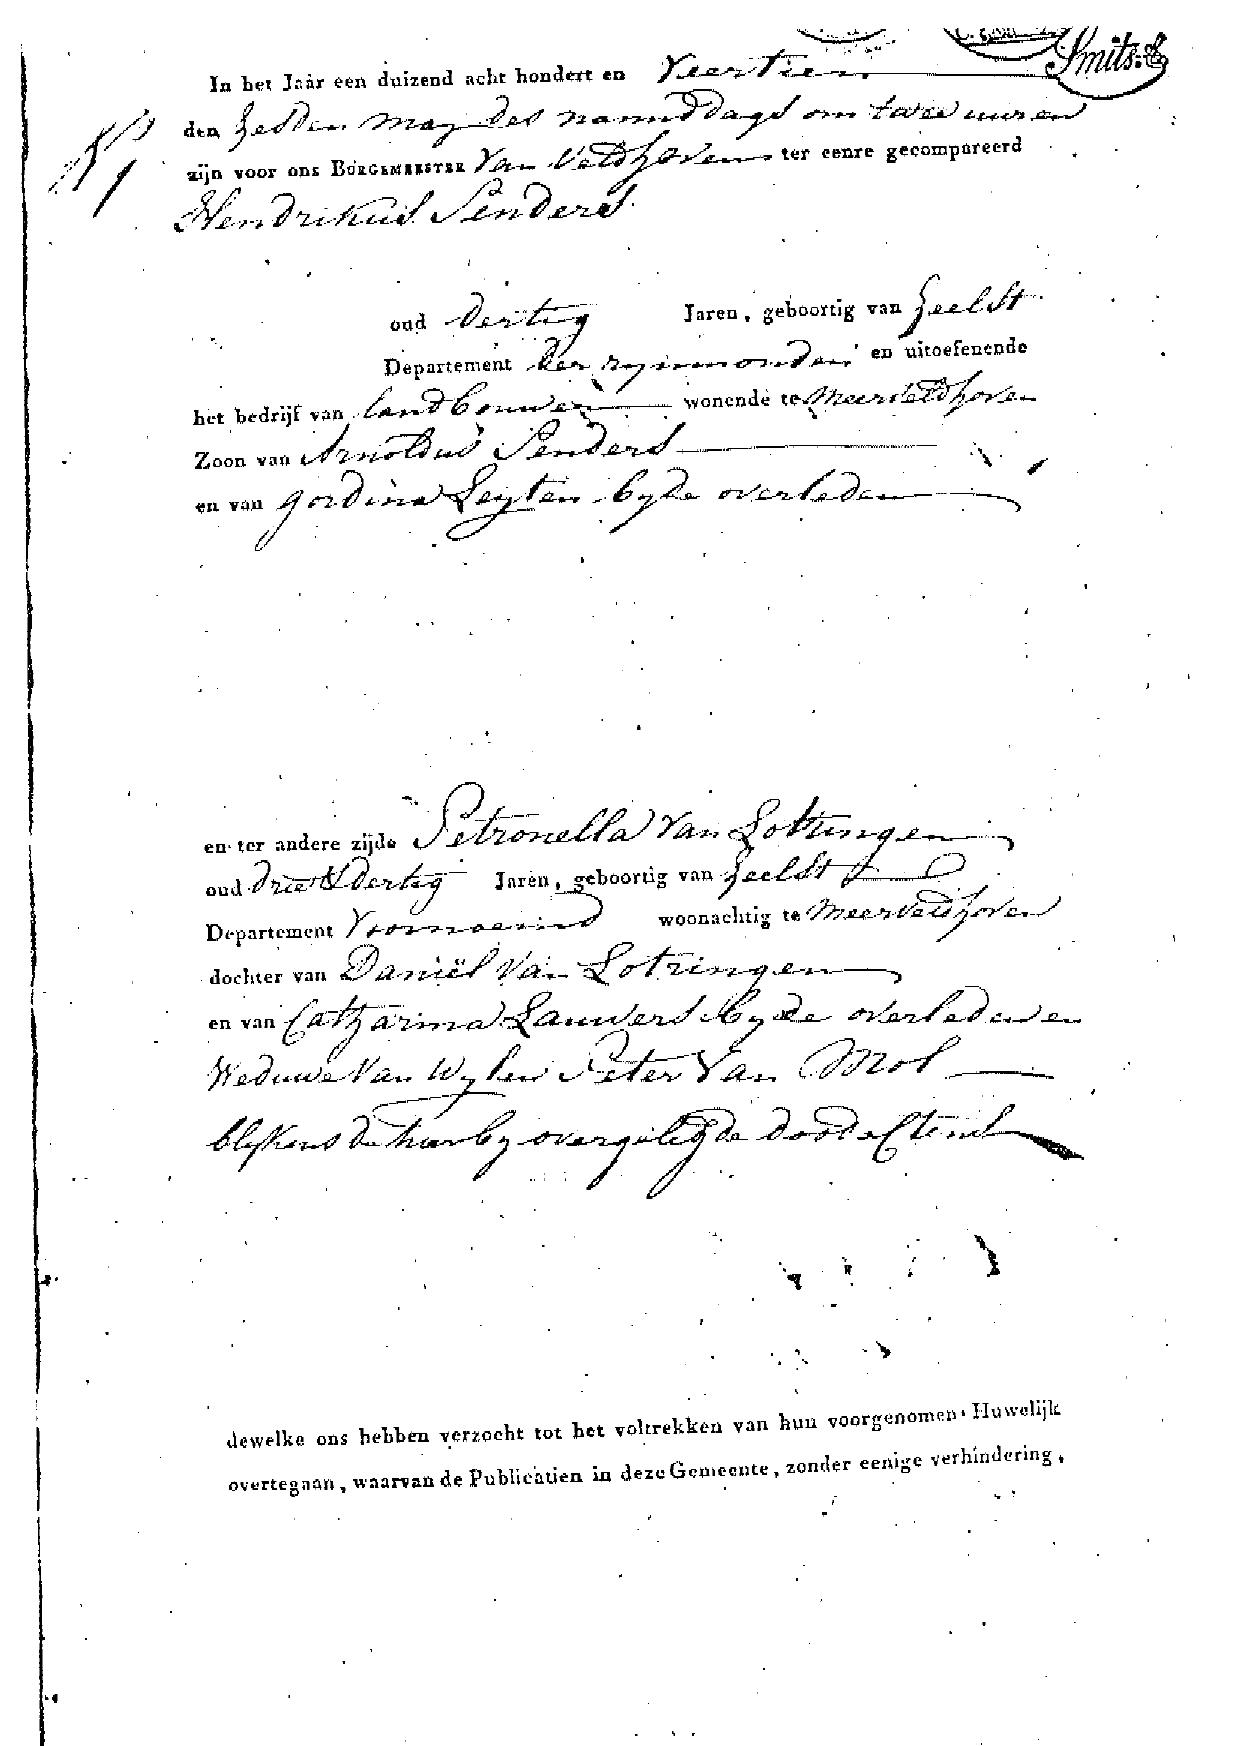 Smits.
In het Jaar een duizend acht hondert en Veertien
den Zesden may des namiddags om twee uuren
zijn voor ons BURGEMEESTER Van Veldhoven ter eenre gecompareerd
Hendrikus Senders
oud dertig Jaren, geboortig van Zeelst
Departement der rynmonden en uitoefenende
het bedrijf van landbouwer wonende te Meerveldhoven
Zoon van Arnoldus Senders
en van gordina Leyten byde overleden
en ter andere zijde Petronella Van Lotringen
oud drie & dertig Jaren, geboortig van Zeelst
Departement Voornoemd woonachtig te Meerveldhoven
dochter van Daniël Van Lotringen
en van Catharina Lauwers byde overleden en
Weduwe Van Wylen Peter Van Mol
blykens de hier by overgelegde dood Actens
dewelke ons hebben verzocht tot het voltrekken van hun voorgenomen Huwelijk
overtegaan, waarvan de Publicatien in deze Gemeente, zonder eenige verhindering,